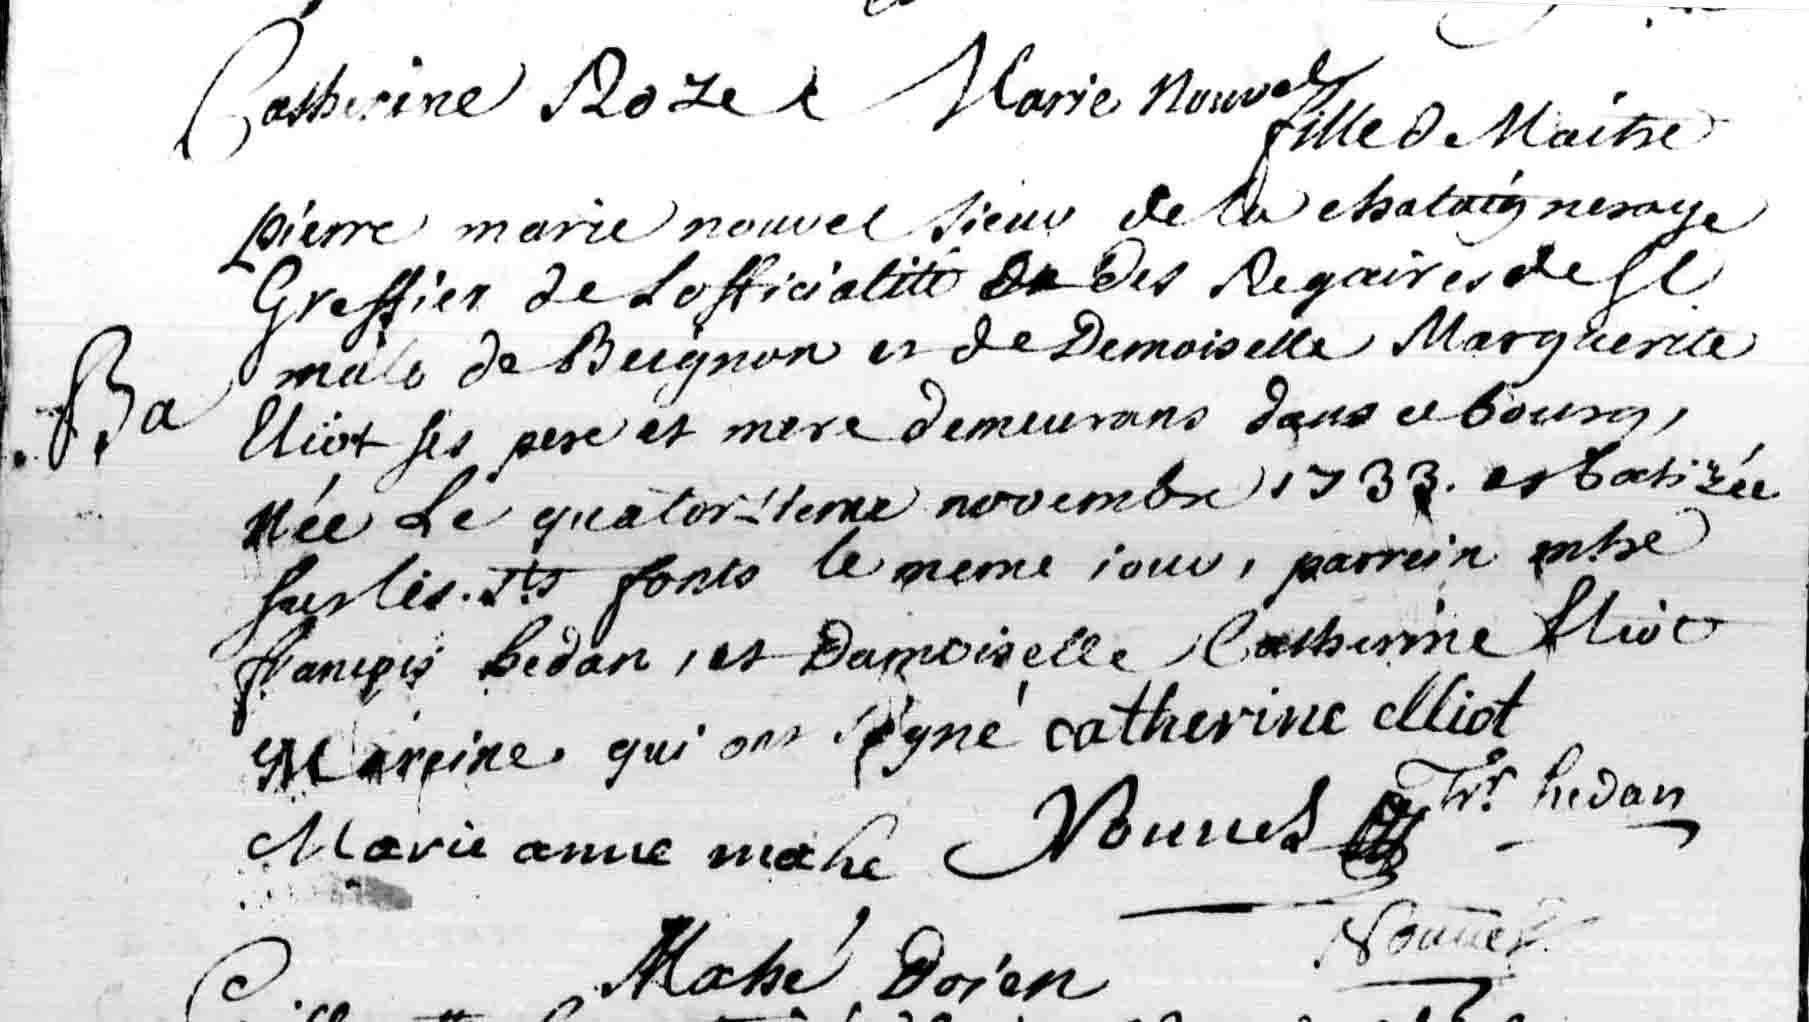 Catherine Roze Marie Nouvel
fille de Maitre
pierre marie nouvel sieur de la chataigneraye
Greffier de Lofficialité des Regaires de St
malo de Beignon et de Demoiselle Marguerite
Eliot ses pere et mere demeurans dans ce bourg,
Ba
Née Le quatorzieme novembre 1733. et batizée
sur les. Sts fonts le meme iour, parrein
francois hedan, et Damoiselle Catherine Eliot
Mareine qui ont signé catherine elliot
fr. hedan
Marie anne mahe Nouuel
Nouuel
Mahé Doien